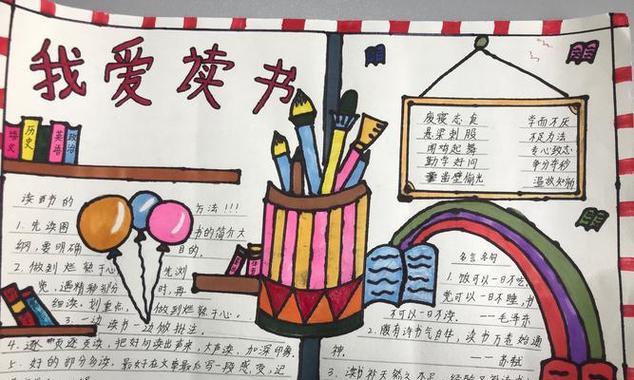 我爱读书
语文
历史
英语
政治
废寝忘食 学而不厌
悬梁刺股 不足为法
闻鸡起舞 专心致志
勤学好问 争分夺秒
凿壁偷光 温故知新
读书的 方法!!!
1. 先读图书的简介大
纲,要明确目的。
2. 做到烂熟于心 先浏
览,遇精神部分时,再
细读。划重点,做到烂熟于心。
3. 一边读书一边做批注。
4. 逐页逐页读,把好词读出声来,大声读,加深印象。
5. 好的部分多读。最好在文章最后写一段感发,记
名言名句
1. 饭可以一日不吃,
觉可以一日不睡,书
不可以一日不读。
——毛泽东
2. 腹有诗书气自华,读书万卷始通
神。
——苏轼
3. 读书补天然之不足,经验又